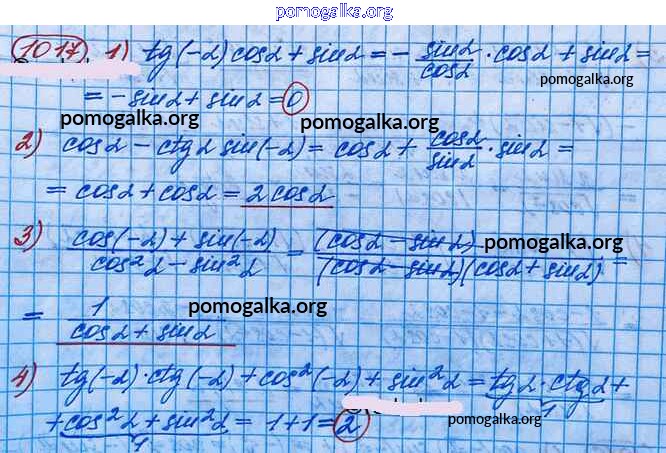 pomogalka.org
1017 1) tg(-α) cosα + sinα = - sinα/cosα · cosα + sinα =
pomogalka.org
= - sinα + sinα = 0
pomogalka.org pomogalka.org
2) cosα - ctgα sin(-α) = cosα + cosα/sinα · sinα =
= cosα + cosα = 2cosα
3) cos(-α) + sin(-α)/cos²α - sin²α = (cosα - sinα)/(cosα - sinα)(cosα + sinα) =
pomogalka.org
= 1/cosα + sinα
pomogalka.org
4) tg(-α) · ctg(-α) + cos²(-α) + sin²α = tgα · ctgα +
1
+ cos²α + sin²α = 1 + 1 = 2
1
pomogalka.org